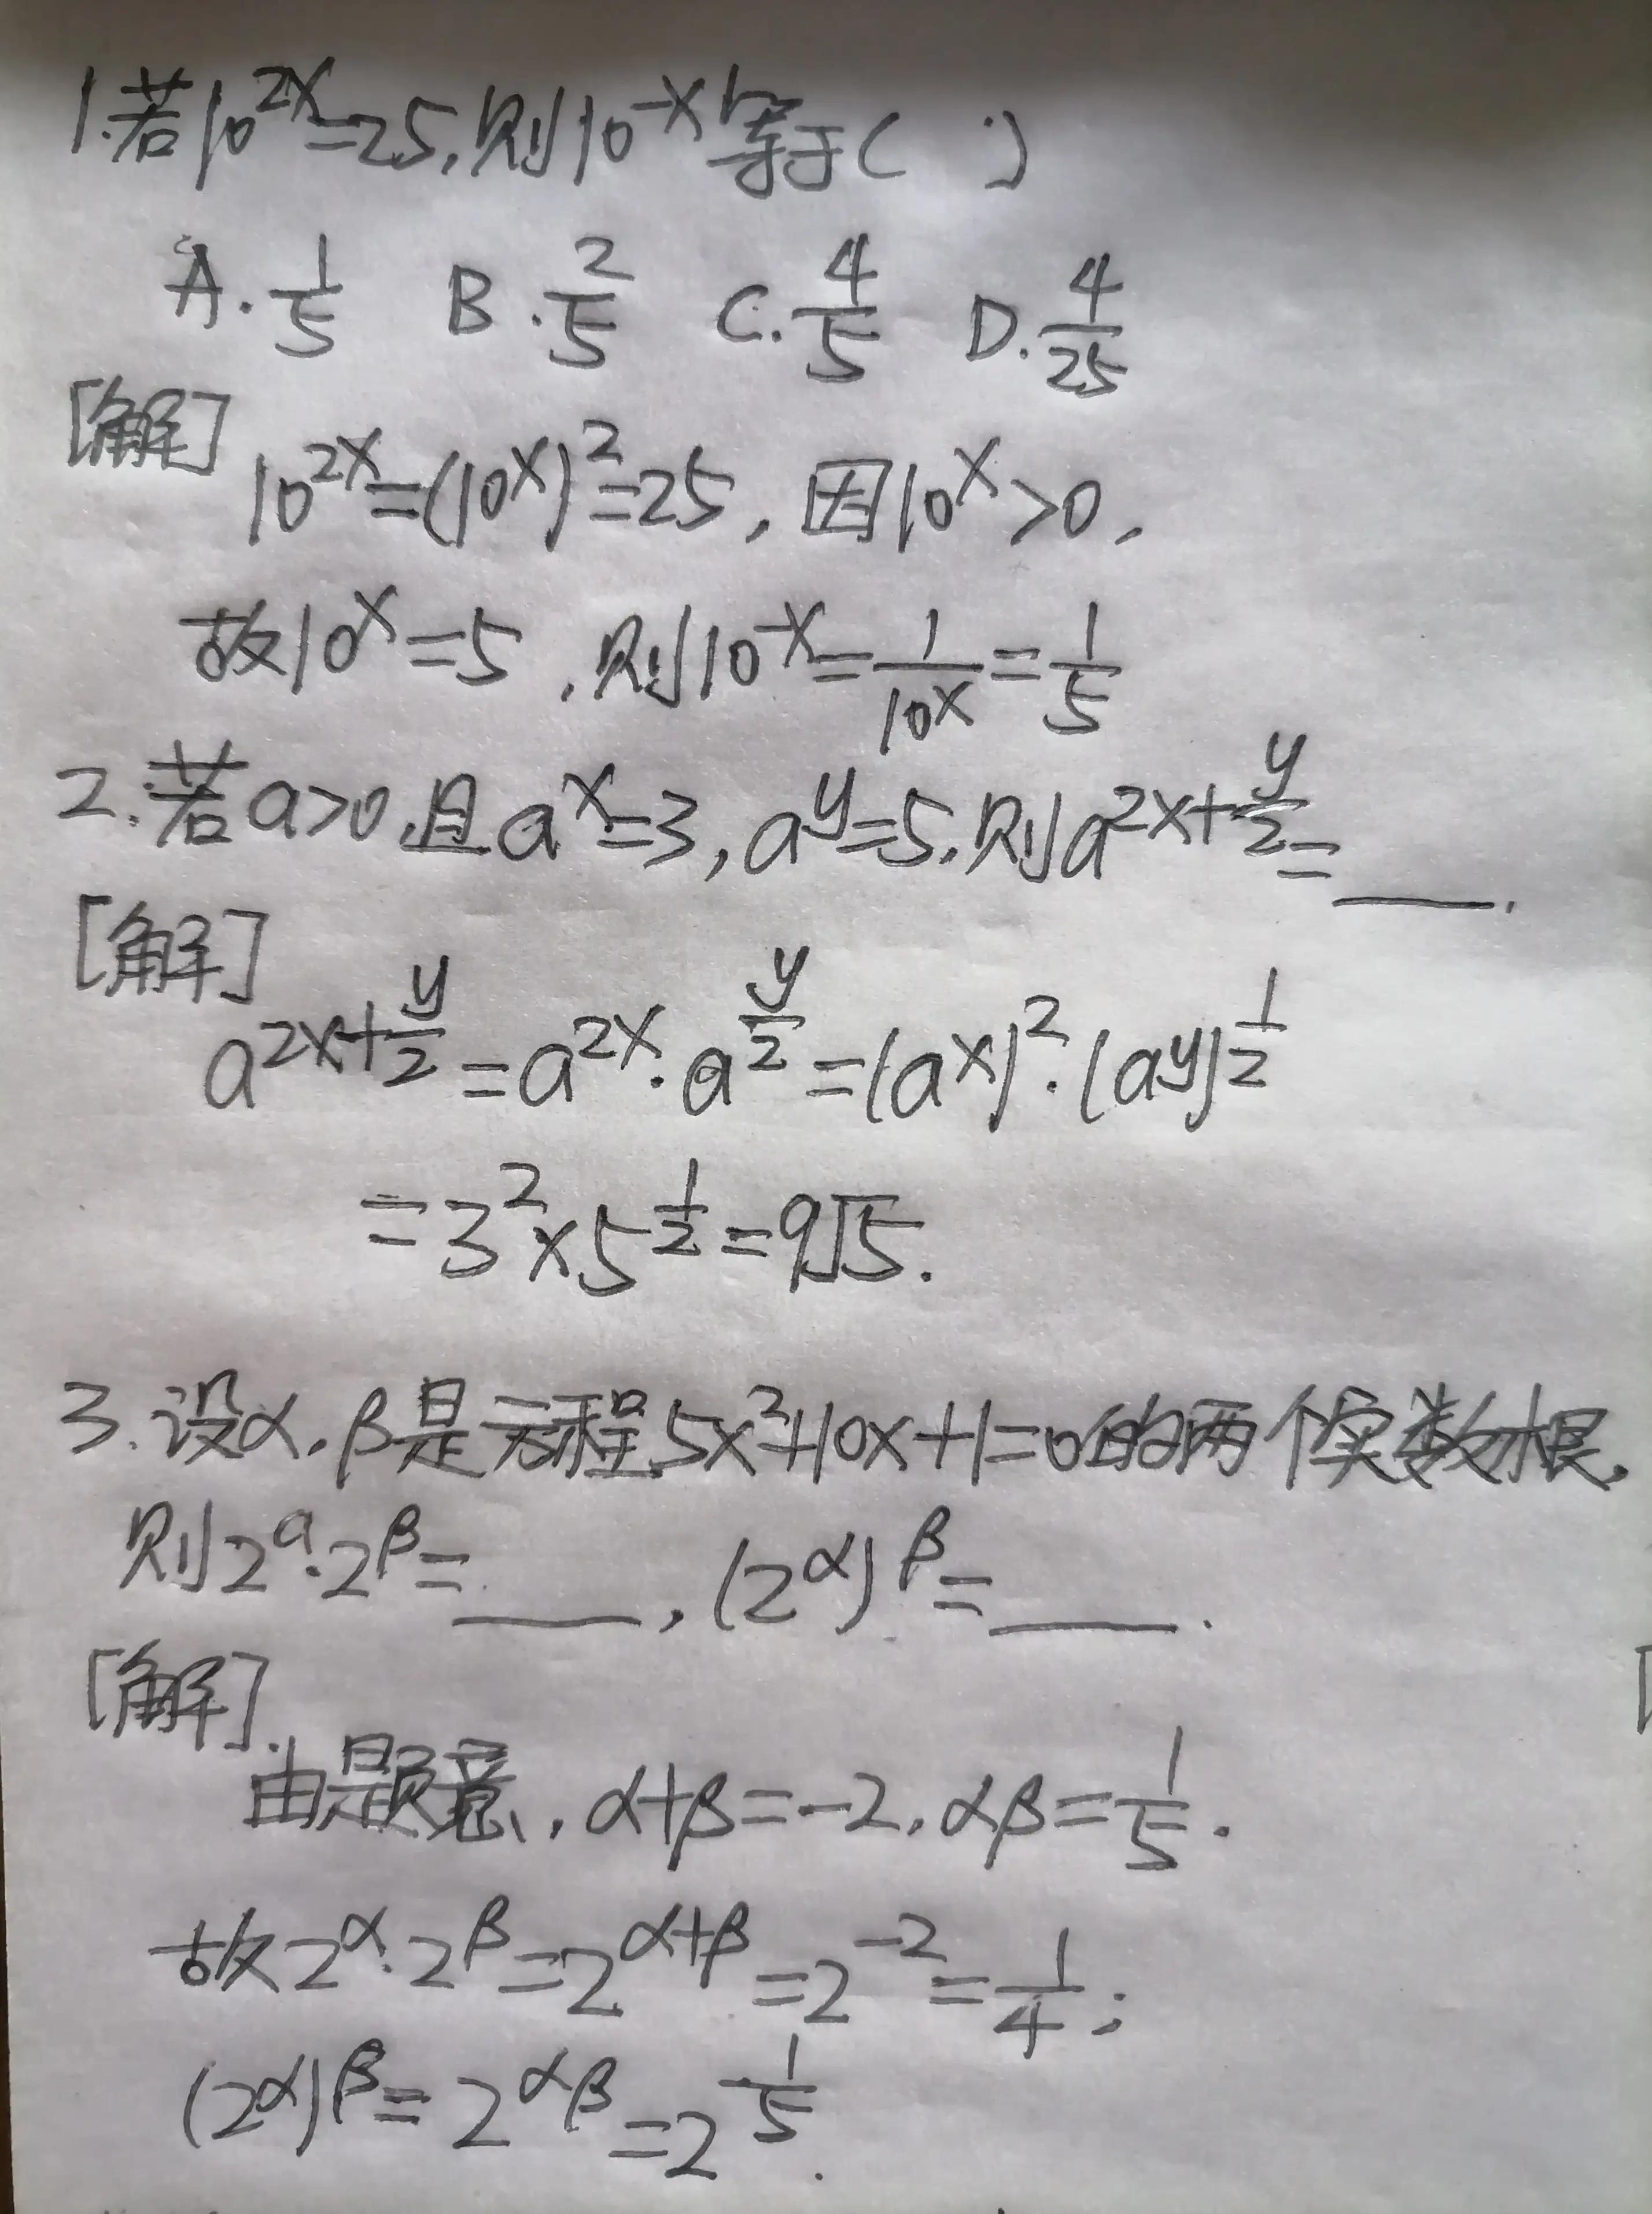 1.若10^{2x}=25,则10^{-x}等于( )
A.1/5 B.2/5 C.4/5 D.4/25
[解]
10^{2x}=(10^x)^2=25,因10^x>0,
故10^x=5,则10^{-x}=1/10^x=1/5
2.若a>0,且a^x=3,a^y=5,则a^{2x+y/2}=___.
[解]
a^{2x+y/2}=a^{2x}·a^{y/2}=(a^x)^2·(a^y)^{1/2}
=3^2×5^{1/2}=9√5.
3.设α,β是方程5x^2+10x+1=0的两个实数根,
则2^α·2^β=___,(2^α)^β=___.
[解].
由题意,α+β=-2,αβ=1/5.
故2^α·2^β=2^{α+β}=2^{-2}=1/4;
(2^α)^β=2^{αβ}=2^{1/5}.